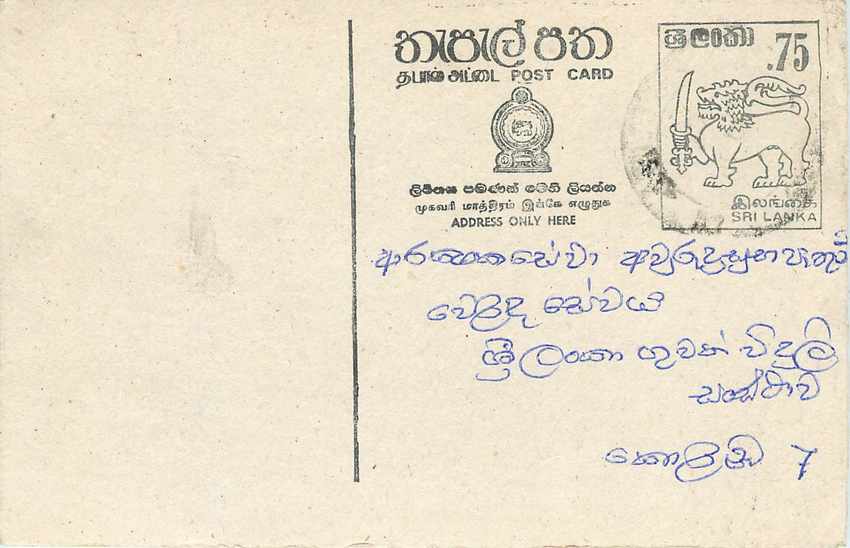 තැපැල් පත
தபால் அட்டை POST CARD
ලිපිනය පමණක් මෙහි ලියන්න
முகவரி மாத்திரம் இங்கே எழுதுக
ADDRESS ONLY HERE
ශ්‍රී ලංකා
.75
இலங்கை
SRI LANKA
ආරක්ෂක සේවා අවුරුදු සුභ පැතුම්
වෙළඳ සේවය
ශ්‍රී ලංකා ගුවන් විදුලි
සංස්ථාව
කොළඹ 7